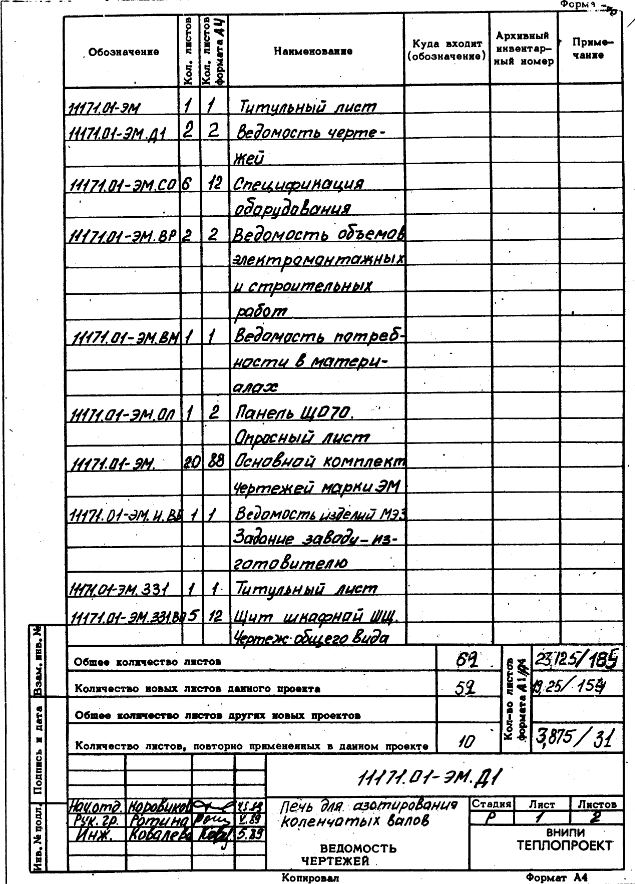 Форма
Обозначение Кол. листов Кол. листов формата А4 Наименование Куда входит (обозначение) Архивный инвентар-ный номер Приме-чание
11171.01-ЭМ 1 1 Титульный лист
11171.01-ЭМ.Д1 2 2 Ведомость черте-
жей
11171.01-ЭМ.СО 6 12 Спецификация
оборудования
11171.01-ЭМ.ВР 2 2 Ведомость объемов
электромонтажных
и строительных
работ
11171.01-ЭМ.ВМ 1 1 Ведомость потреб-
ности в матери-
алах
11171.01-ЭМ.ОЛ 1 2 Панель ЩО70.
Опросный лист
11171.01-ЭМ. 20 88 Основной комплект
чертежей марки ЭМ
11171.01-ЭМ.И.ВБ 1 1 Ведомость изделий МЭЗ
Задание заводу-из-
готовителю
11171.01-ЭМ.331 1 1 Титульный лист
11171.01-ЭМ.331.ВО 5 12 Щит шкафной ШЩ.
Чертеж общего вида
Общее количество листов 69 23,125/185
Количество новых листов данного проекта 59 19,25/154
Общее количество листов других новых проектов
Количество листов, повторно примененных в данном проекте 10 3,875/31
Кол-во листов формата А1/А4
Взам. инв. №
Подпись и дата
Инв. № подл.
11171.01-ЭМ.Д1
Нач.отд. Коровиков
Рук. гр. Ротина V.89
Инж. Ковалева 5.89
Печь для азотирования
коленчатых валов
ВЕДОМОСТЬ
ЧЕРТЕЖЕЙ
Стадия Лист Листов
Р 1 2
ВНИПИ
ТЕПЛОПРОЕКТ
Копировал Формат А4